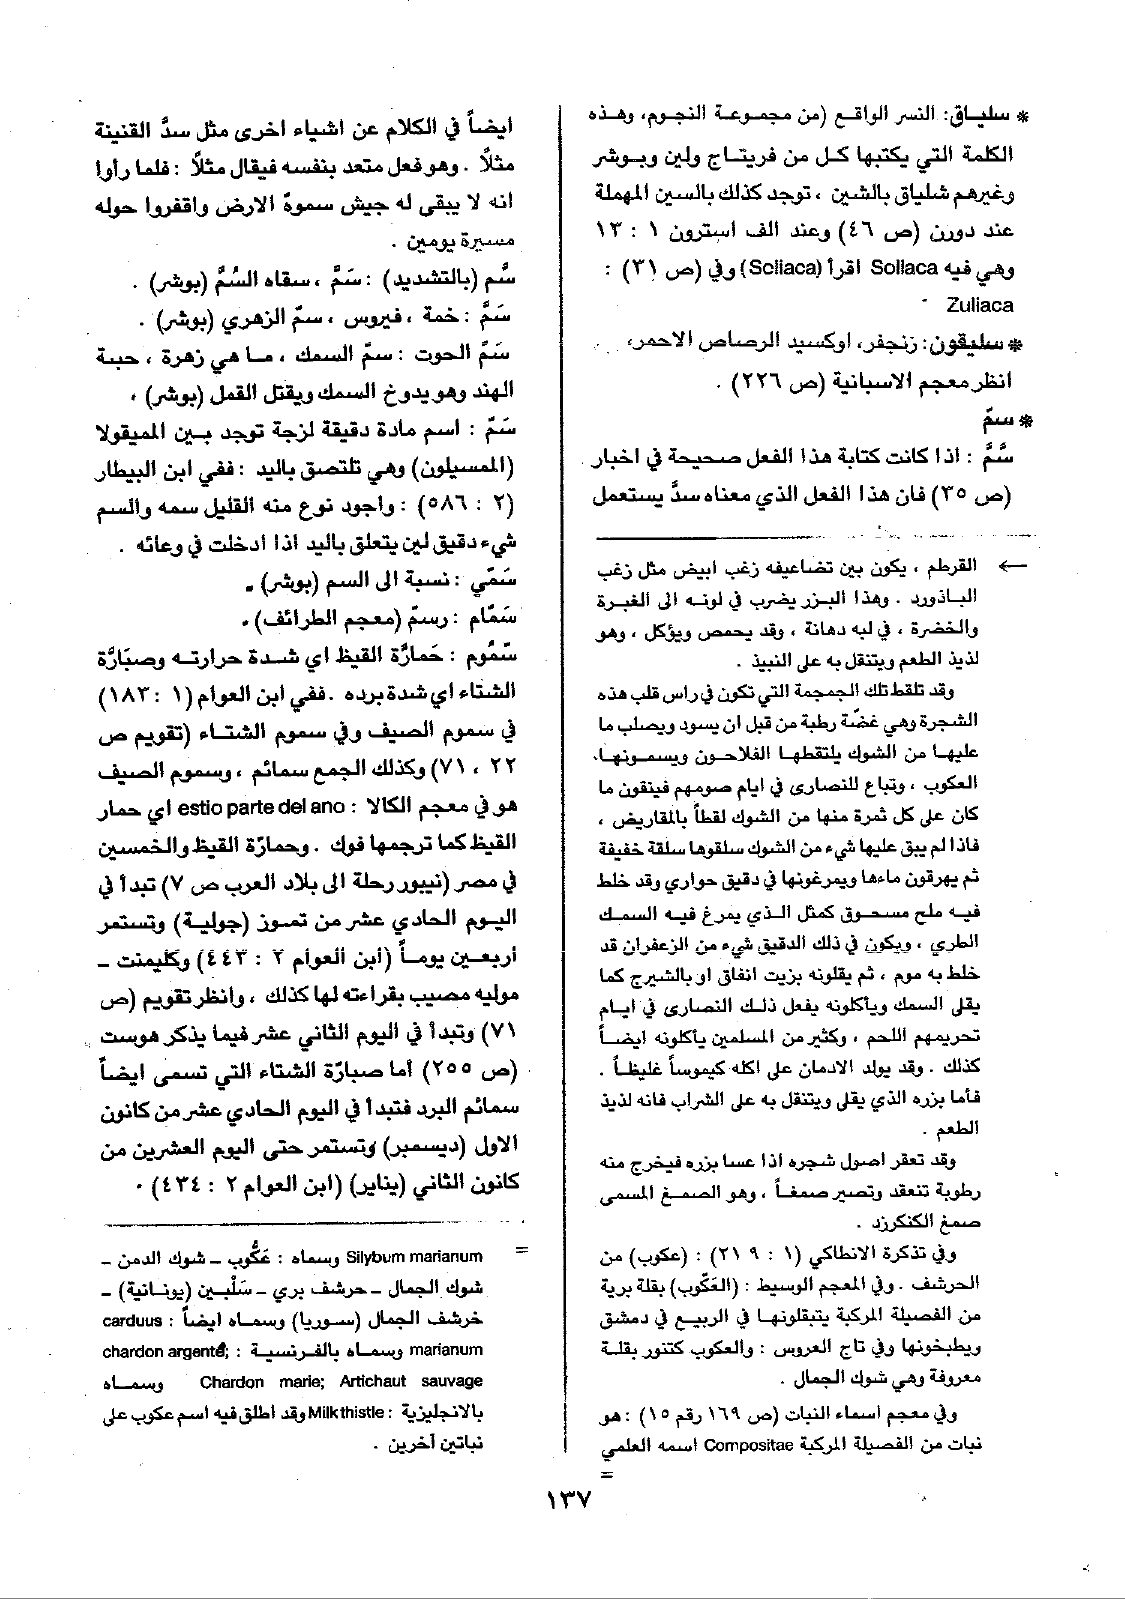 * سلياق: النسر الواقع (من مجموعة النجوم، وهذه
الكلمة التي يكتبها كل من فريتاج ولين وبوشر
وغيرهم شلياق بالشين ، توجد كذلك بالسين المهملة
عند دورن (ص ٤٦) وعند الف استرون ١ : ١٣
وهي فيه Sollaca اقرأ (Scliaca) وفي (ص ٣١) :
Zuliaca
* سليقون: زنجفر، اوكسيد الرصاص الاحمر،
انظر معجم الاسبانية (ص ٢٢٦) .
* سمّ
سُمَّ : اذا كانت كتابة هذا الفعل صحيحة في اخبار
(ص ٣٥) فان هذا الفعل الذي معناه سدَّ يستعمل
ايضاً في الكلام عن اشياء اخرى مثل سدَّ القنينة
مثلاً . وهو فعل متعد بنفسه فيقال مثلاً : فلما رأوا
انه لا يبقى له جيش سموهُ الارض واقفروا حوله
مسيرة يومين .
سُّم (بالتشديد) : سَمَّ ، سقاه السُمَّ (بوشر) .
سَمَّ : خمة ، فيروس ، سمّ الزهري (بوشر) .
سَمّ الحوت : سمّ السمك ، ما هي زهرة ، حبة
الهند وهو يدوخ السمك ويقتل القمل (بوشر) ،
سَمّ : اسم مادة دقيقة لزجة توجد بين الميقولا
(المسيلون) وهي تلتصق باليد : ففي ابن البيطار
(٢ : ٥٨٦) : واجود نوع منه القليل سمه والسم
شيء دقيق لين يتعلق باليد اذا ادخلت في وعائه .
سَمّي : نسبة الى السم (بوشر) .
سَمّام : رسمّ (معجم الطرائف) .
سَّمُوم : حَمارَّة القيظ اي شدة حرارته وصبَارَّة
الشتاء اي شدة برده . ففي ابن العوام (١ : ١٨٣)
في سموم الصيف وفي سموم الشتاء (تقويم ص
٢٢ ، ٧١) وكذلك الجمع سمائم ، وسموم الصيف
هو في معجم الكالا : estio parte del ano اي حمار
القيظ كما ترجمها فوك . وحمارّة القيظ والخمسين
في مصر (نيبور رحلة الى بلاد العرب ص ٧) تبدأ في
اليوم الحادي عشر من تموز (جولية) وتستمر
أربعين يوماً (أبن ألعوام ٢ : ٤٤٣) وكليمنت -
موليه مصيب بقراءته لها كذلك ، وانظر تقويم (ص
٧١) وتبدأ في اليوم الثاني عشر فيما يذكر هوست
(ص ٢٥٥) أما صبارّة الشتاء التي تسمى ايضاً
سمائم البرد فتبدأ في اليوم الحادي عشر من كانون
الاول (ديسمبر) وتستمر حتى اليوم العشرين من
كانون الثاني (يناير) (ابن العوام ٢ : ٤٣٤) .
← القرطم ، يكون بين تضاعيفه زغب ابيض مثل زغب
الباذورد . وهذا البزر يضرب في لونه الى الغبرة
والخضرة ، في لبه دهانة ، وقد يحمص ويؤكل ، وهو
لذيذ الطعم ويتنقل به على النبيذ .
وقد تلقط تلك الجمجمة التي تكون في راس قلب هذه
الشجرة وهي غضّة رطبة من قبل ان يسود ويصلب ما
عليها من الشوك يلتقطها الفلاحون ويسمونها،
العكوب ، وتباع للنصارى في ايام صومهم فينقون ما
كان على كل ثمرة منها من الشوك لقطاً بالمقاريض ،
فاذا لم يبق عليها شيء من الشوك سلقوها سلقة خفيفة
ثم يهرقون ماءها ويمرغونها في دقيق حواري وقد خلط
فيه ملح مسحوق كمثل الذي يمرغ فيه السمك
الطري ، ويكون في ذلك الدقيق شيء من الزعفران قد
خلط به موم ، ثم يقلونه بزيت انفاق او بالشيرج كما
يقلى السمك ويأكلونه يفعل ذلك النصارى في ايام
تحريمهم اللحم ، وكثير من المسلمين يأكلونه ايضاً
كذلك . وقد يولد الادمان على اكله كيموساً غليظاً .
فأما بزره الذي يقلى ويتنقل به على الشراب فانه لذيذ
الطعم .
وقد تعقر اصول شجره اذا عسا بزره فيخرج منه
رطوبة تنعقد وتصير صمغاً ، وهو الصمغ المسمى
صمغ الكنكرزد .
وفي تذكرة الانطاكي (١ : ٢١٩) : (عكوب) من
الحرشف . وفي المعجم الوسيط : (العَكّوب) بقلة برية
من الفصيلة المركبة يتبقلونها في الربيع في دمشق
ويطبخونها وفي تاج العروس : والعكوب كتنور بقلة
معروفة وهي شوك الجمال .
وفي معجم اسماء النبات (ص ١٦٩ رقم ١٥) : هو
نبات من الفصيلة المركبة Compositae اسمه العلمي
=
= Silybum marianum وسماه : عَكُّوب - شوك الدمن -
شوك الجمال - حرشف بري - سَلْبين (يونانية) -
خرشف الجمال (سوريا) وسماه ايضاً : carduus
marianum وسماه بالفرنسية : chardon argenté;
Chardon marie; Artichaut sauvage وسماه
بالانجليزية : Milk thistle وقد اطلق فيه اسم عكوب على
نباتين آخرين .
١٣٧